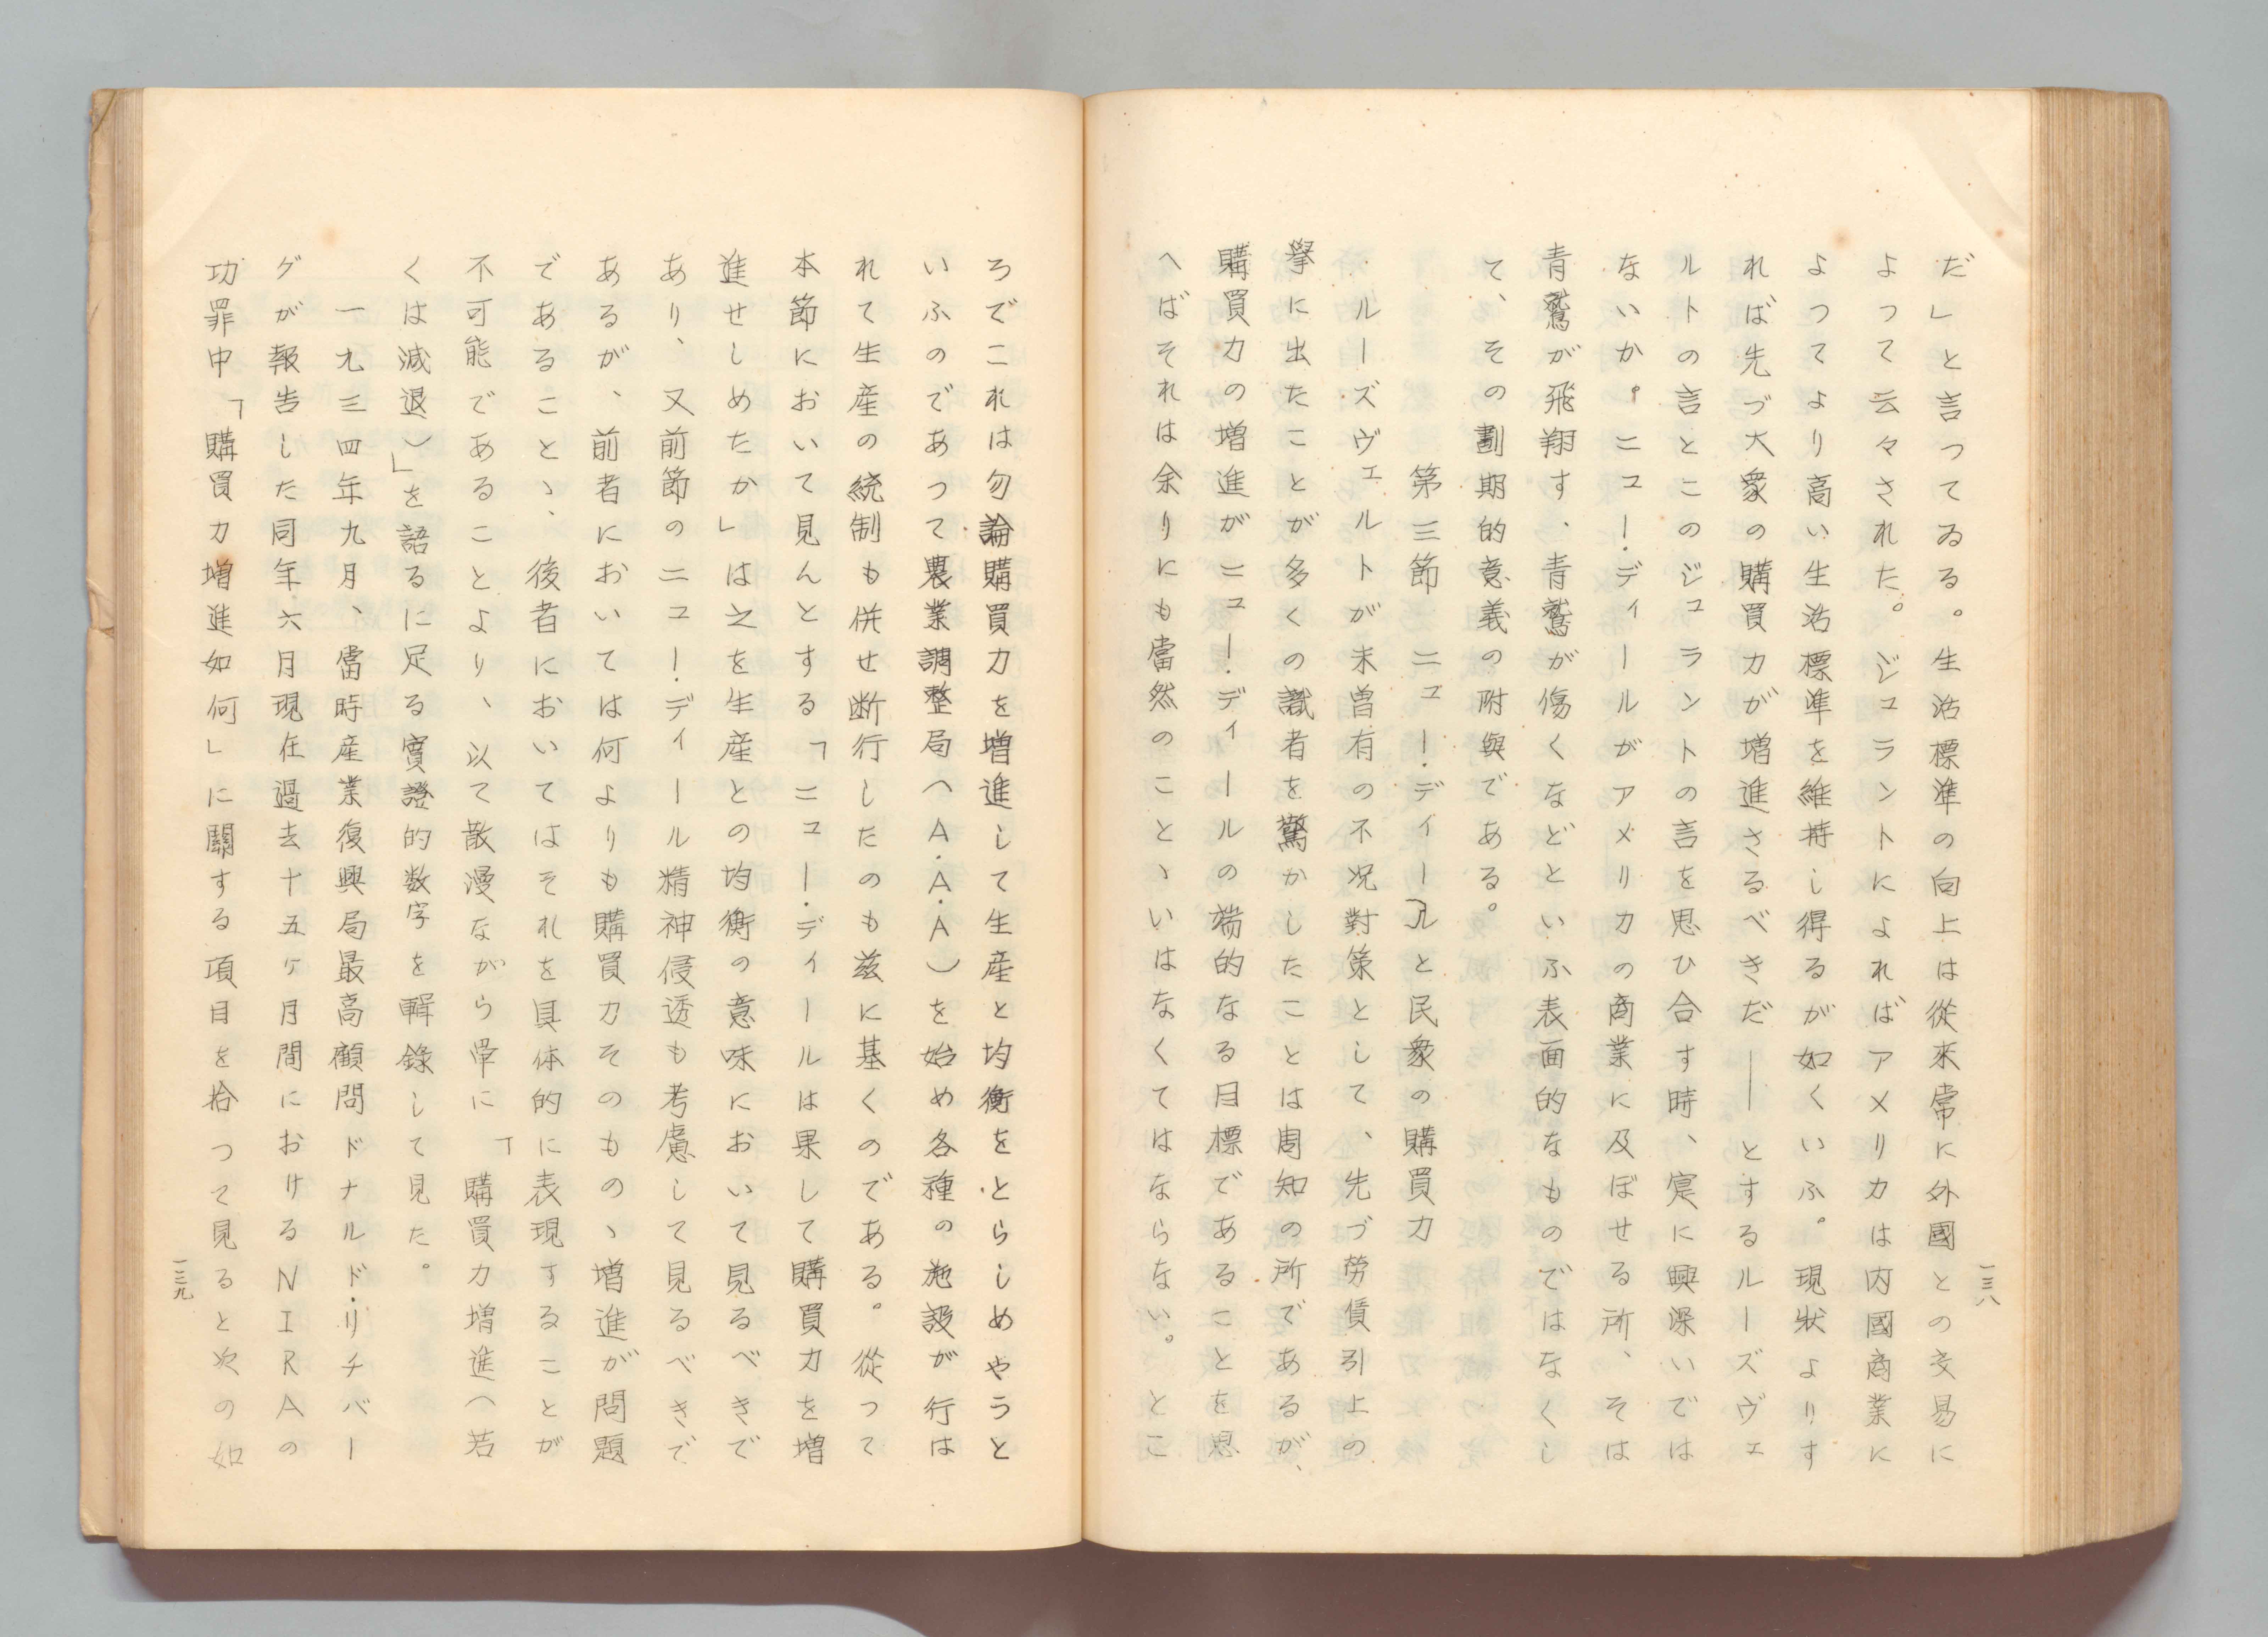 だ」と言つてゐる。生活標準の向上は從來常に外國との交易に
よつて云々された。ジュラントによればアメリカは内國商業に
よつてより高い生活標準を維持し得るが如くいふ。現狀よりす
れば先づ大衆の購買力が増進さるべきだ――とするルーズヴェ
ルトの言とこのジュラントの言を思ひ合す時、寔に興深いでは
ないか。ニュー・ディールがアメリカの商業に及ぼせる所、そは
青鷲が飛翔す、青鷲が傷くなどといふ表面的なものではなくし
て、その劃期的意義の附與である。
第三節 ニュー・ディールと民衆の購買力
ルーズヴェルトが未曽有の不況對策として、先づ勞賃引上の
擧に出たことが多くの識者を驚かしたことは周知の所であるが、
購買力の増進がニュー・ディールの端的なる目標であることを思
へばそれは余りにも當然のことゝいはなくてはならない。とこ
一三八
ろでこれは勿論購買力を増進して生産と均衡をとらしめやうと
いふのであつて農業調整局（A.A.A）を始め各種の施設が行は
れて生産の統制も併せ断行したのも茲に基くのである。從つて
本節において見んとする「ニュー・ディールは果して購買力を増
進せしめたか」は之を生産との均衡の意味において見るべきで
あり、又前節のニュー・ディール精神侵透も考慮して見るべきで
あるが、前者においては何よりも購買力そのものゝ増進が問題
であること、後者においてはそれを具体的に表現することが
不可能であることより、以て散漫ながら単に「購買力増進（若
くは減退）」を語るに足る實證的数字を輯錄して見た。
一九三四年九月、當時産業復興局最高顧問ドナルド・リチバー
グが報告した同年六月現在過去十五ヶ月間におけるNIRAの
功罪中「購買力増進如何」に關する項目を拾つて見ると次の如
一三九